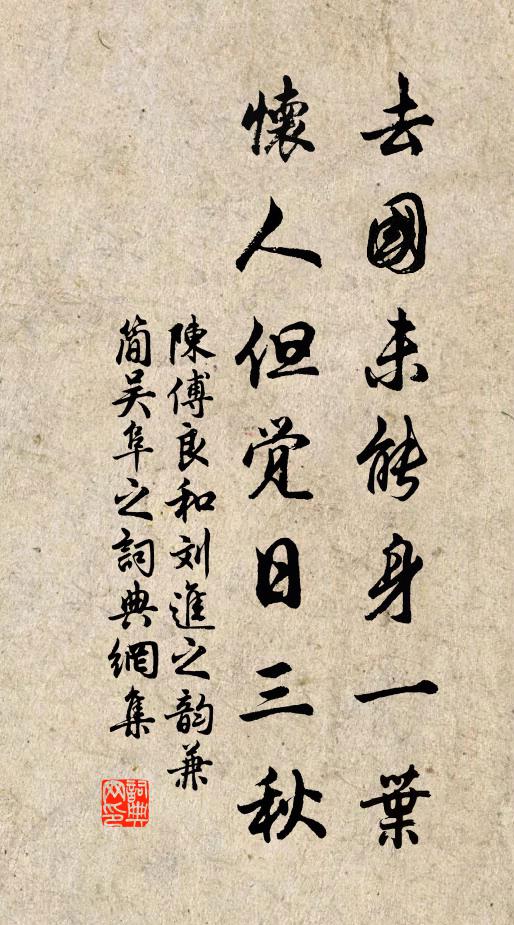 去國未能身一葉
懷人但覺日三秋
陳傅良和刘進之韵兼
簡吴阜之詞典網集
詞典網印